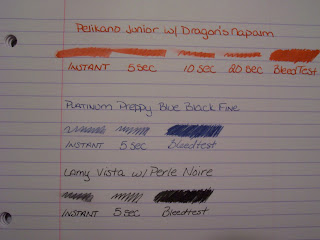 Pelikano Junior w/ Dragon's Napalm
INSTANT 5 sec 10 sec 20 sec Bleed Test
Platinum Preppy Blue Black Fine
INSTANT 5 sec Bleedtest
Lamy Vista w/ Perle Noire
INSTANT 5 sec Bleedtest